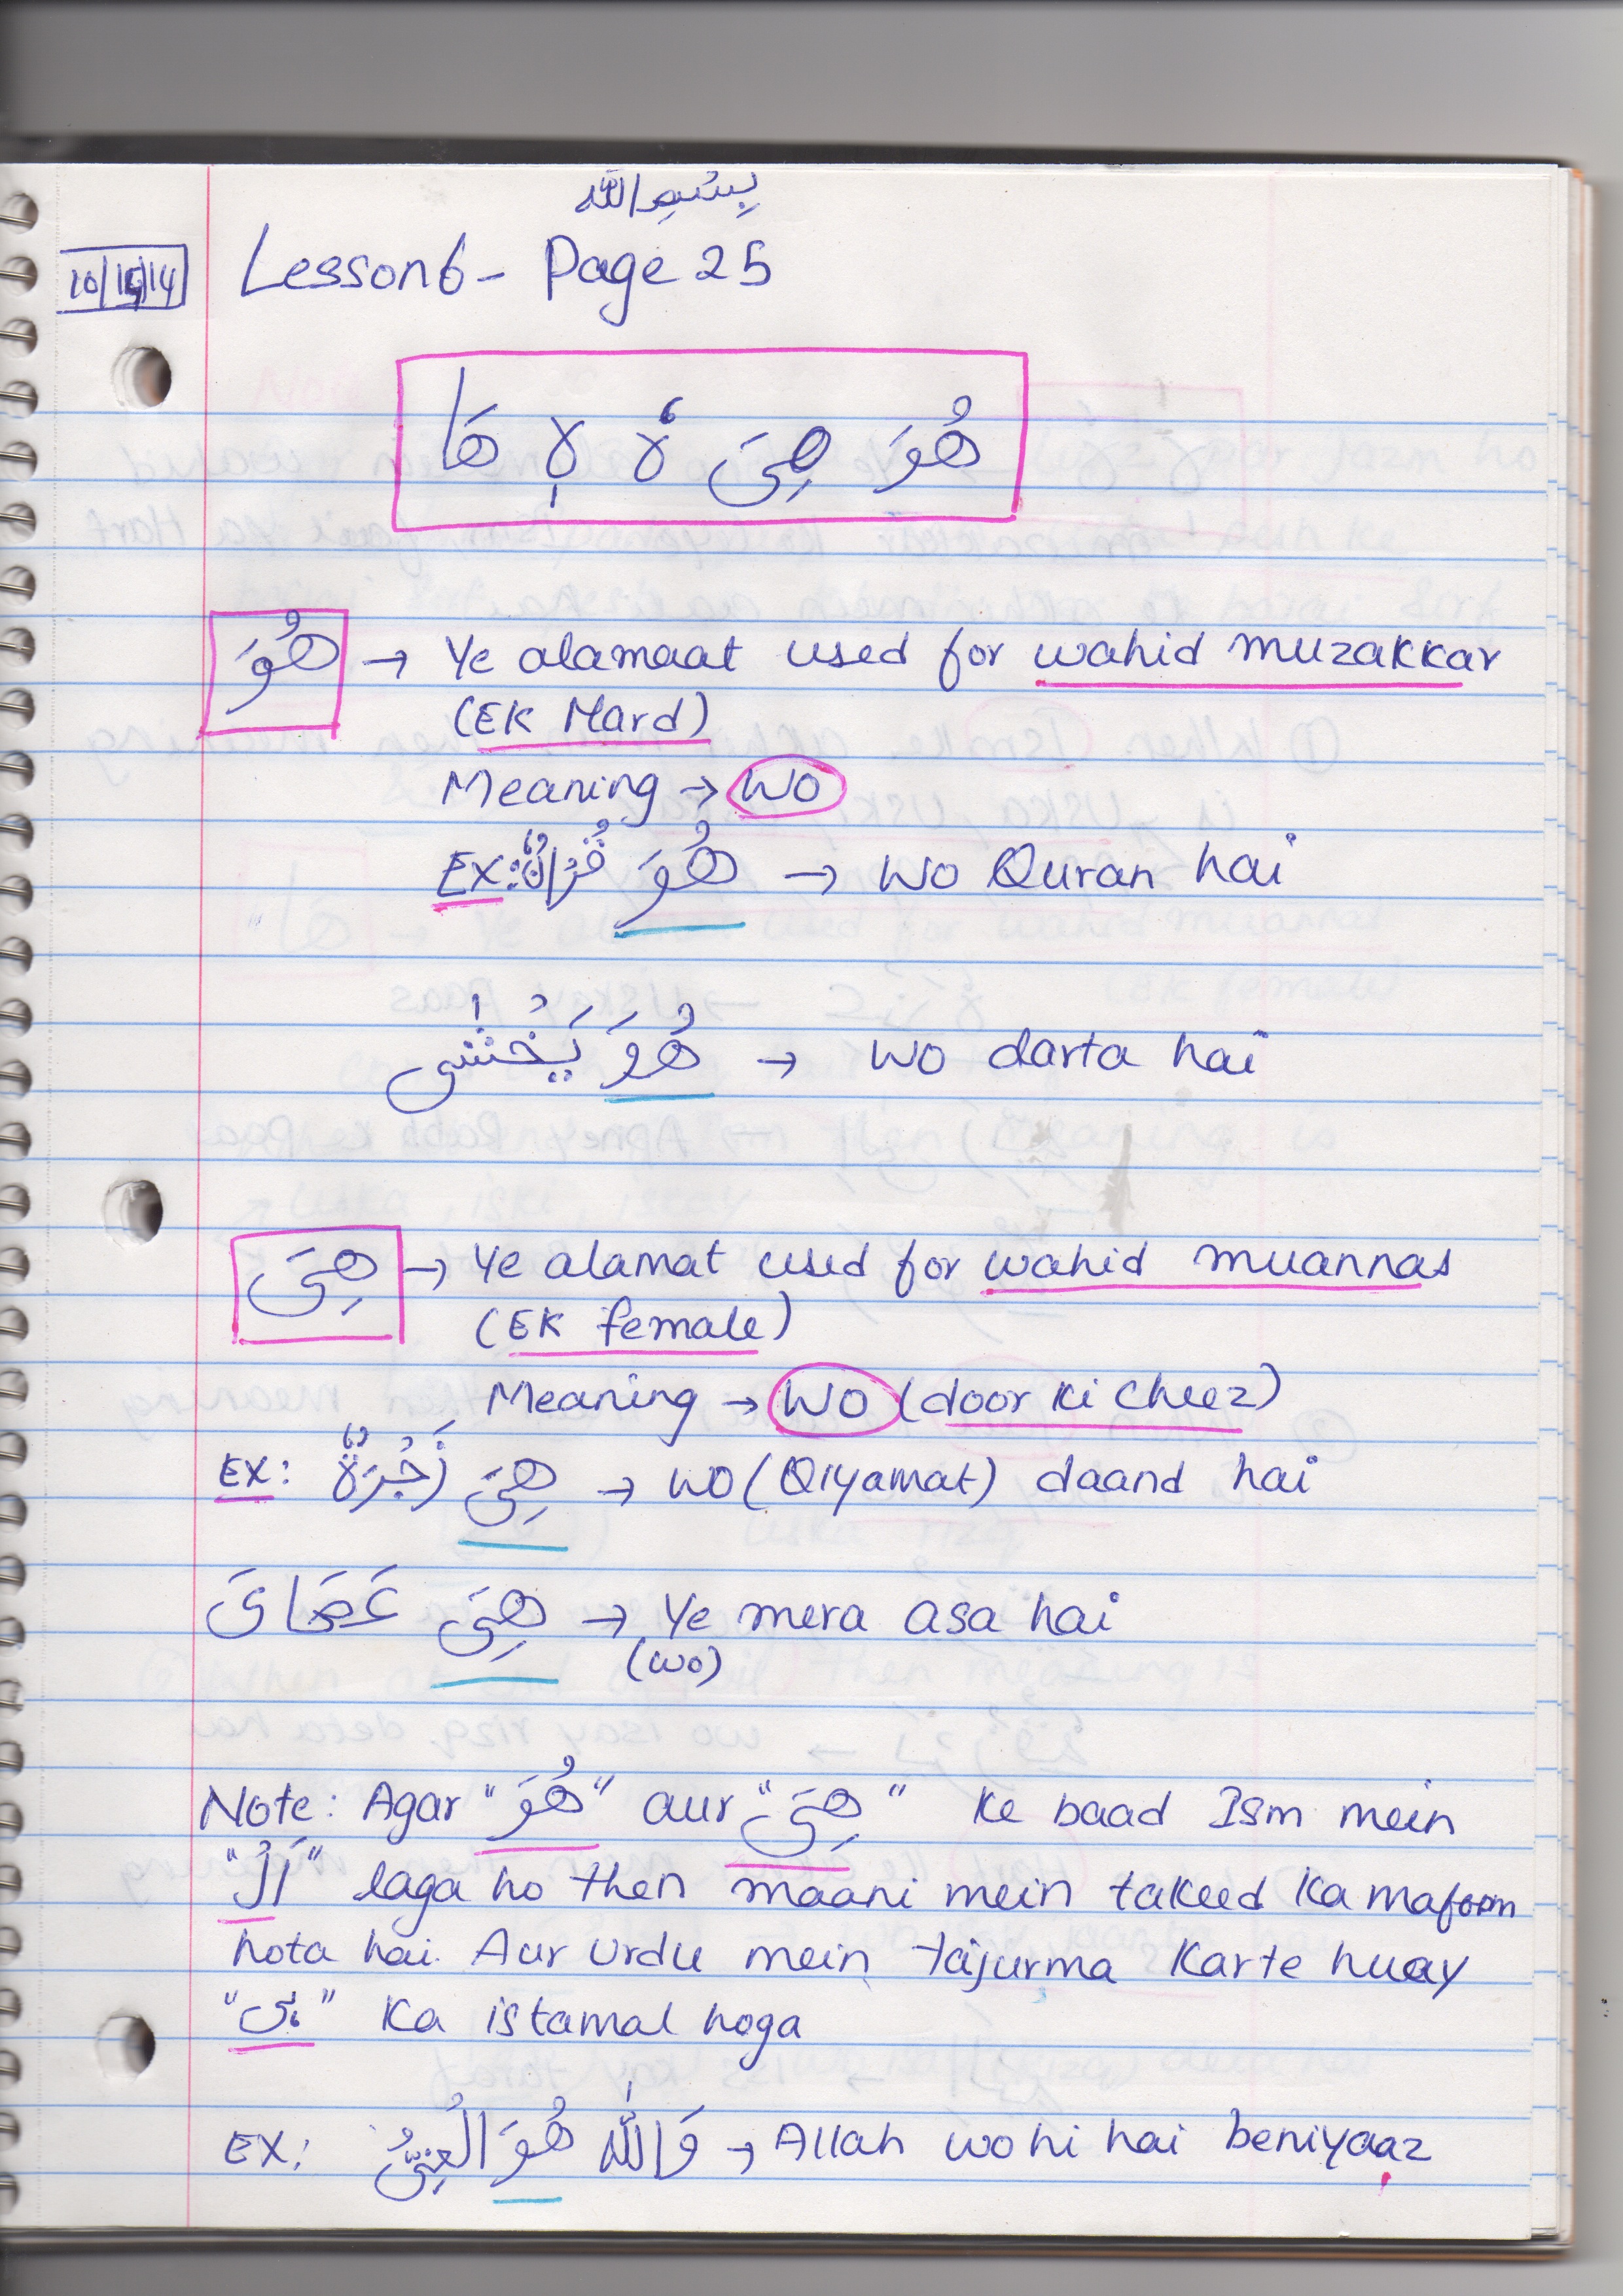 بِسْمِ اللّٰه
Lesson 6 - Page 25
هُوَ هِیَ هٗ لاِ هَا
هُوَ → Ye alamaat used for wahid muzakkar
(EK Mard)
Meaning → WO
EX: هُوَ قُرْاٰنٌ → WO Quran hai
هُوَ یَخْشٰی → WO darta hai
هِیَ → Ye alamat used for wahid muannas
(EK female)
Meaning → WO (door Ki Cheez)
EX: هِیَ زَجْرَةٌ → WO (Qiyamat) daand hai
هِیَ عَصَایَ → Ye mera asa hai
(WO)
Note: Agar "هُوَ" aur "هِیَ" Ke baad Ism mein
"اَلْ" laga ho then maani mein takeed Ka mafoom
hota hai. Aur urdu mein tajurma Karte huay
"ہی" Ka istamal hoga
EX: وَاللّٰه هُوَ الْغَنِیُّ → Allah wohi hai beniyaaz